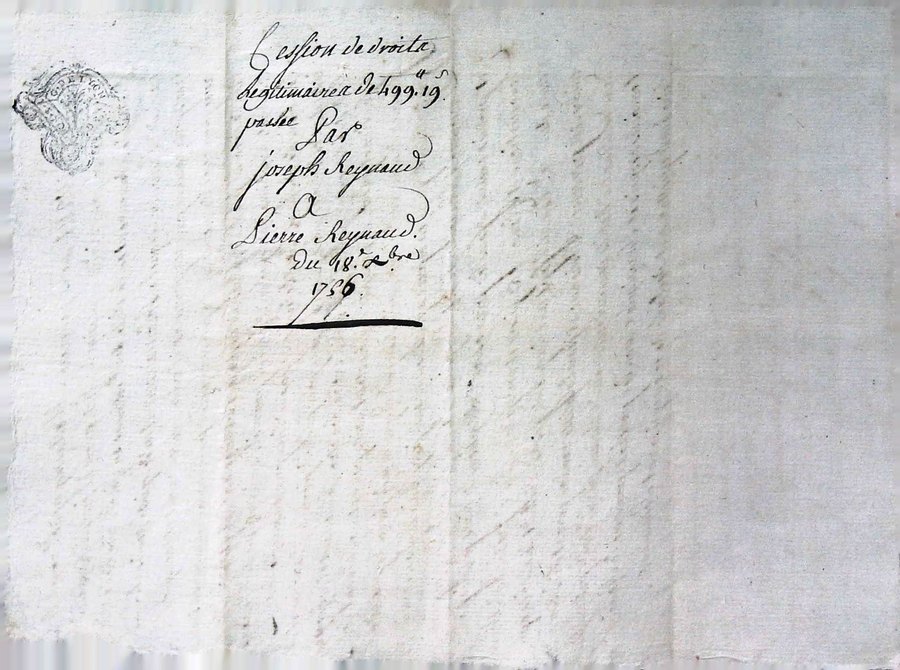 Cession de droits
legitimaires de 499.ᴸᴸ 19.ˢ
passée
Par
joseph Reynaud
A
Pierre Reynaud.
Du 18.ᵉ xbre
1756.